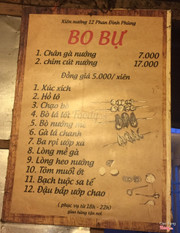 Xiên nướng 12 Phan Đình Phùng
BO BỰ
1. Chân gà nướng 7.000
2. chim cút nướng 17.000
Đồng giá 5.000/ xiên
1. Xúc xích
2. Hồ lô
3. Chạo
4. Bò lá lốt
5. Bò nướng
6. Gà tả chanh
7. Ba rọi ướp xả
8. Lòng mề gà
9. Lòng heo nướng
10. Tôm muối ớt
11. Bạch tuộc sa tế
12. Đậu bắp ướp chao
( phục vụ từ 18h - 22h)
giao hàng tận nơi